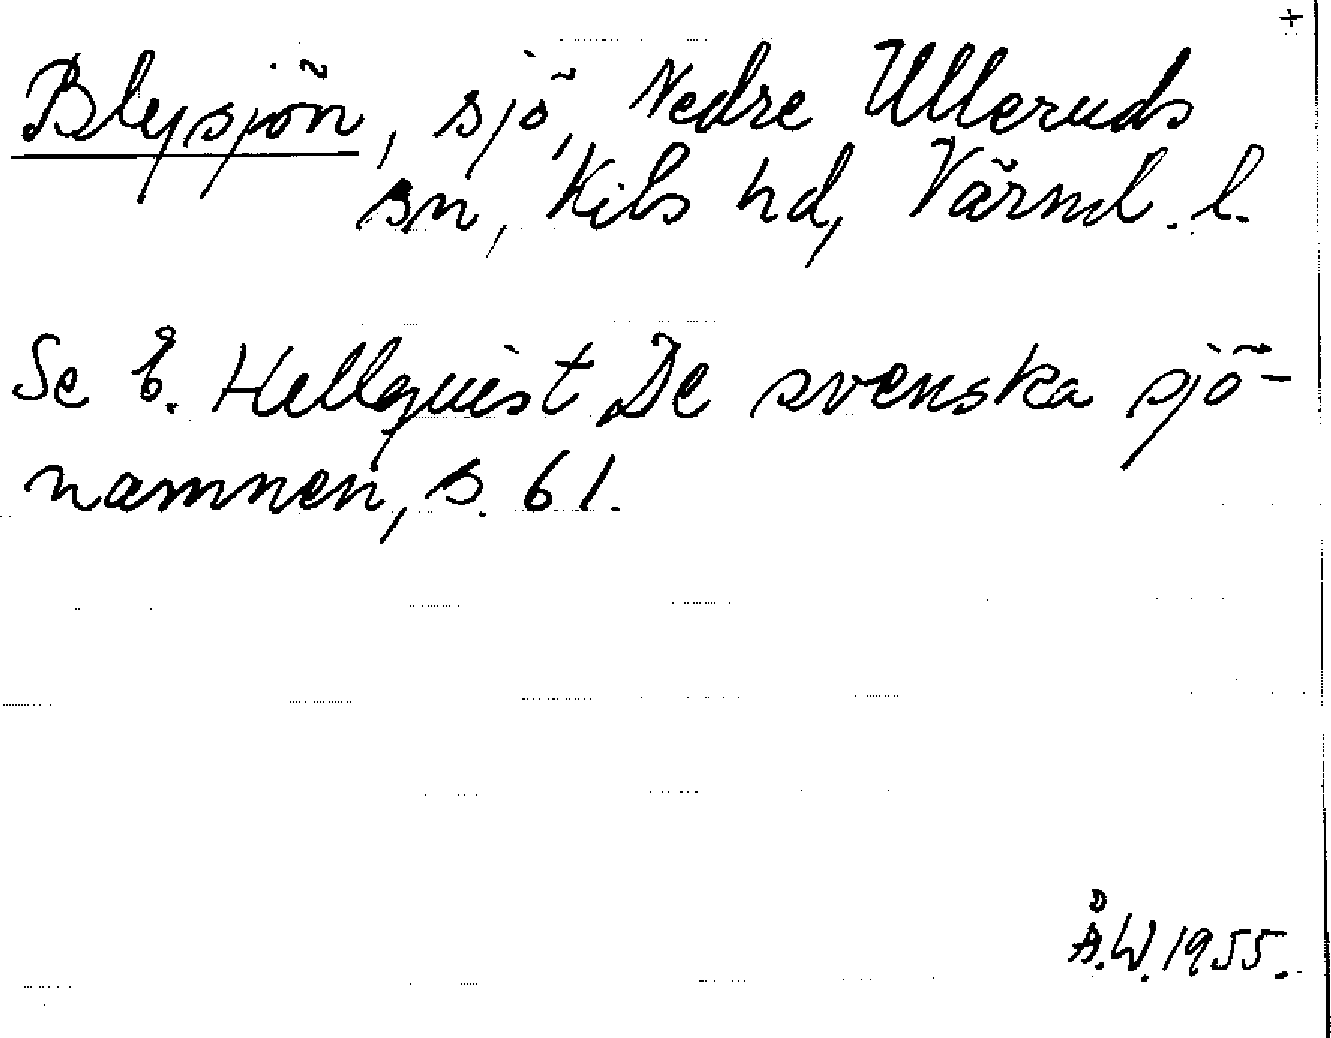 +
Blysjön, sjö, Nedre Ulleruds
sn, Kils hd, Värml. l.
Se E. Hellquist De svenska sjö-
namnen, s. 61.
Å.W. 1955.